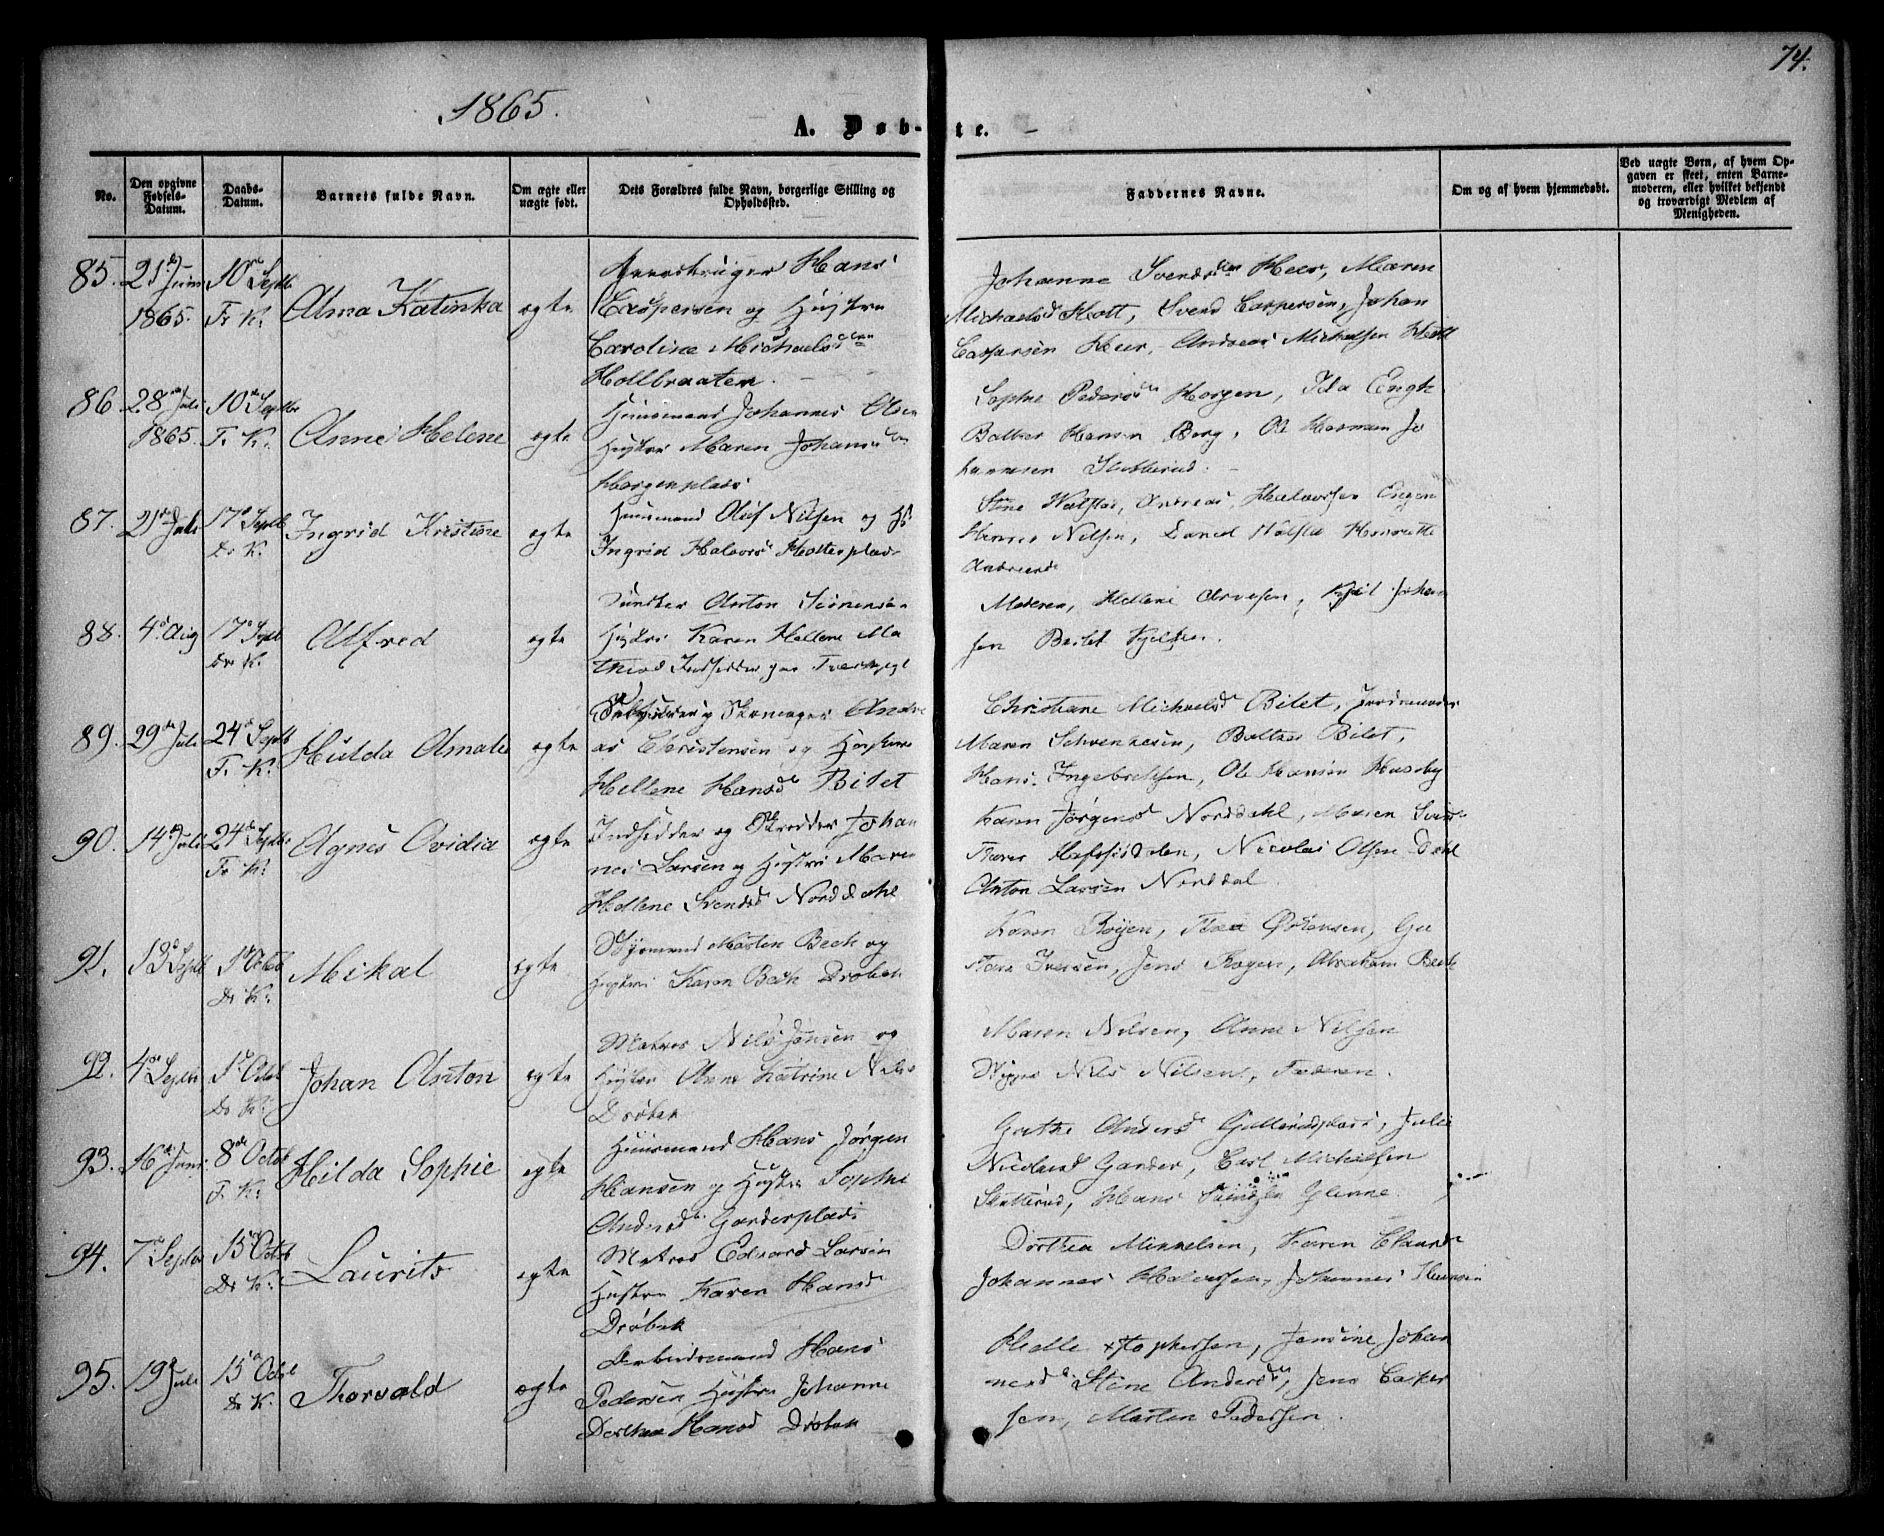 74.
1865.
A. Døb-te.
No.
Den opgivne Fødsels-Datum.
Daabs-Datum.
Barnets fulde Navn.
Om ægte eller uægte født.
Dets Forældres fulde Navn, borgerlige Stilling og Opholdssted.
Faddernes Navne.
Om og af hvem hjemmedøbt.
Ved uægte Børn, af hvem Opgaven er skeet, enten Barnemoderen, eller hvilket bekjendt og troværdigt Medlem af Menigheden.
85. 21 Juni 1865. 10 Septbr F. K. Alma Katinka ægte
Gaardbruger Hans
Caspersen og Hustru
Caroline Michaelsd
Hollbraaten.
Johanne Svendsd Heer, Maren
Michaelsd Hott, Svend Caspersen, Johan
Caspersen Heer, Andreas Michelsen Hott
86 28 Juli 1865. 10 Septbr F. K. Anne Helene ægte
Huusmand Johannes Olsen
Hustru Maren Johansd
Horgenplads
Sophie Pedersd Horgen, Ida Engh
Balzer Hansen Borg, Ole Herman Jo
hannesen Skotterud.
87. 21 Juli 17 Septb Dr K. Ingrid Kristine ægte
Huusmand Oluf Nilsen og H
Ingrid Halvorsd Hotteplads
Stine Holstad, Andreas Halvorsen Engen
Nilsen, Henriette
88. 4 Aug 17 Septb Dr K. Alfred ægte
Anton Sørensen
Hustru Karen Hellene Ma
thisd Indsidder paa
Moderen, Hellene Arvesen, Johan
sen Bilet
89. 29 Juli 24 Septb F. K. Hulda Amalie ægte
Skomager Andre
as Christensen og Hustru
Hellene Hansd Bilet
Christiane Michaelsd Bilet, Jordmoder
Maren Schvenkesen, Balzer Bilet,
Hans Ingebretsen, Ole Hansen Huseby
90. 14 Juli 24 Septbr F. K. Agnes Ovidia ægte
Indsidder og Skredder Johan
nes Larsen og Hustru Maren
Hellene Svendsd Norddahl
Karen Jørgensd Norddahl, Maren
Nicolai Olsen Dahl
Anton Larsen Norddal
91. 13 Septb 1 Octob Dr K. Mikal ægte
Styrmand Morten Bech og
Hustru Karen Bech Drøbak
Karen
Iversen, Jens Abraham Bech
92. 4 Septbr 1 Octob Dr K. Johan Anton ægte
Matros Nils Jensen og
Hustru Anne Katrine Nils
Drøbak
Maren Nilsen, Anne Nilsen
Nils Nilsen, Faderen.
93. 16 Juni 8 Octob F. K. Hilda Sophie ægte
Huusmand Hans Jørgen
Hansen og Hustru Sophie
Andersd Garderplads
Andersd Gulleriudplads, Julie
Nicolaisd Garder, Carl Michelsen
Skotterud, Hans Svendsen Glenne.
94. 7 Septbr 15 Octob Dr K. Laurits ægte
Matros Edvard Larsen
Hustru Karen Hansd
Drøbak
Dorthea Mikkelsen, Karen
Johannes Halvorsen, Johannes
95. 19 Juli 15 Octob Dr K. Thorvald ægte
Arbeidsmand Hans
Pedersen Hustru Johanne
Dorthea Hansd Drøbak
Helle Xstophersen, Jensine Johan
nesd Stine Andersd, Jens Casper
sen, Morten Pedersen.